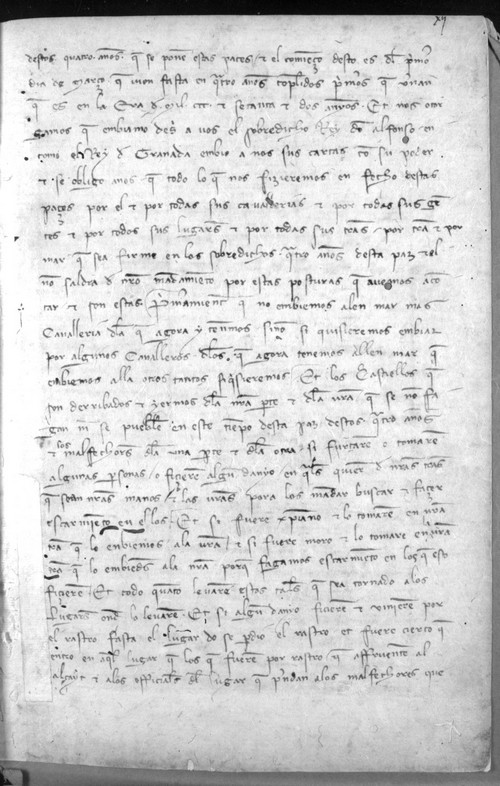 xij
destos quatro años q̃ se pone estas pazes / et el comieço desto es dl p̃mo
dia de março q̃ vien fasta en q̃tro años coplidos p̃mos q̃ vrnan
q̃ es en la Era d mil ccc et setanta et dos annos · Et nos otor
gamos q̃ embiamo a vos el sobredicho Rey do alfonso en
como el Rey d Granada embio a nos sus cartas co su poder
et se obligo anos q̃ todo lo q̃ nos fizieremos en fecho destas
pazes por el et por todas sus cavallerias et por todas sus ge
tes et por todos sus lugares et por todas sus tras / por tra et por
mar q̃ sea firme en los sobredichos q̃tro años desta paz et el
no saldra d nro madamieto por estas posturas q̃ avemos ato
car et son estas p̃rmamient q̃ no embiemos alen mar mas
Cavalleria dla q̃ agora y tenmos sino si quisieremos embiar
por algunos Cavalleros dlos q̃ agora tenemos allen mar q̃
embiemos alla otros tantos si q̃sieremos · Et los Castiellos q̃
son derribados et yermos dla nra pte et dla vra q̃ se no fa
gan ni se pueble en este tiempo desta paz destos q̃tro años
et los malfechors dla una parte et dla otra si furtare o tomare
algunas psonas o ficiere algu danyo en q̃l quier d nras tras
q̃ sean nras manos et las vras pora los mandar buscar et fazer
escarmieto en ellos · Et se fuere xpiano et lo tomare en vra
tra q̃ lo enbiemos ala vra / et si fuere moro et lo tomare en nra
tra q̃ lo embieds ala nra porq̃ fagamos escarmieto en los q̃ esto
ficiere · Et todo quato levare estos tals q̃ sea tornado alos
lugares ond lo levare · Et si algu danio ficiere et viniere por
el rastro fasta el lugar do se pdio el rastro et fuere cierto q̃
entro en aq̃l lugar q̃ los q̃ fuere por rastro q̃ affruente al
alcayt et alos officials dl lugar q̃ prndan alos malfechores que